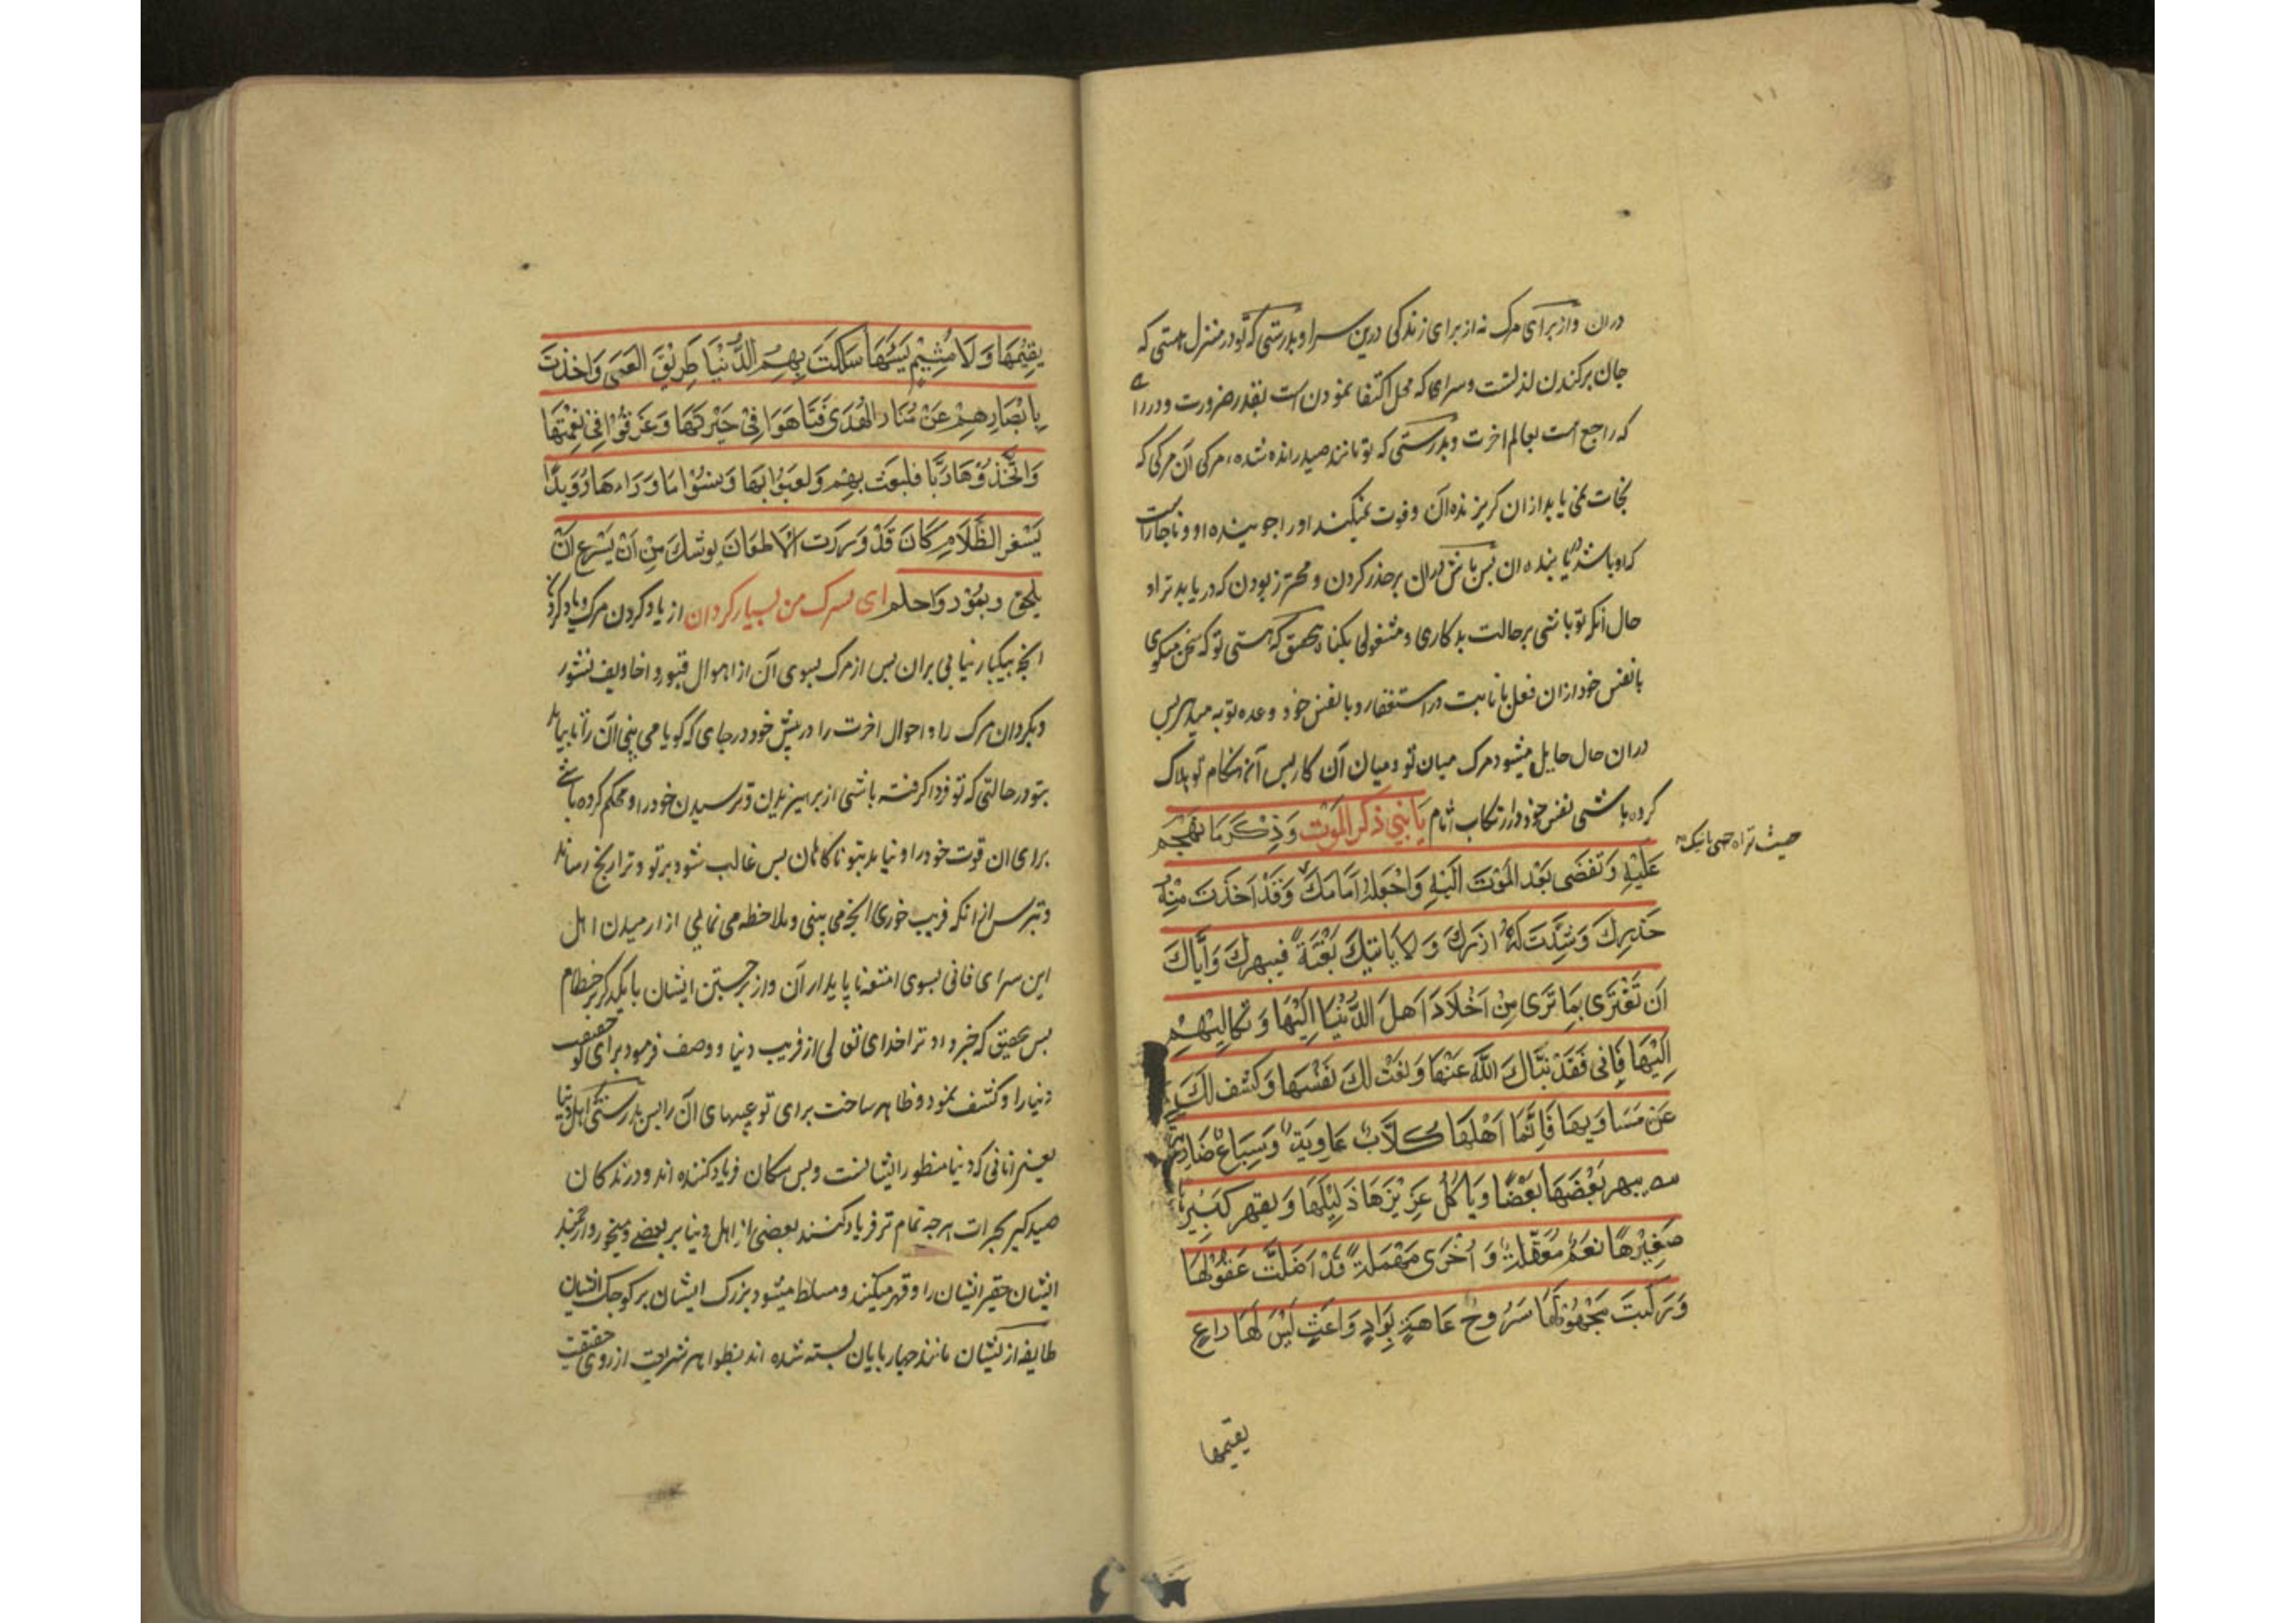 دران واز برای مرک نه از برای زندکی درین سرا و بدرستی که تو در منزل هستی که
جان برکندن لذلشت و سرای که محل اکتفا نمودن است بقدر ضرورت و در راه
که راجع است بعالم اخرت و بدرستی که تو مانند صید رانده شده مرکی آن مرکی که
نجات نمی یابد ازان کریزنده آن و فوت نمیکند اورا جوینده او و ناچار است
که او باشد یابنده آن پس باش دران برحذر کردن و محترز بودن که دریابد ترا و
حال آنکه تو باشی برحالت بدکاری و مشغولی بکناه بتحقیق که هستی تو که سخن میکوی
با نفس خود ازان فعل بانابت و استغفار و با نفس خود وعده توبه میدهی پس
دران حال حایل میشود مرک میان تو و میان آن کار پس آن هنکام تو هلاک
کرده باشی نفس خود را از ارتکاب اثام یَا بُنَيَّ ذكر المَوْت وَذِكْرَ مَا تهجم
عَلَيْهِ وَتفضى بَعْدَ المَوْتَ الَيْهِ وَاجْعَلهُ اَمَامَكَ وَقَدْ اَخَذتَ مِنْهُ
حَذرِكَ وَشَدَّتَ لَهُ ازرَكَ وَلَا يَاتيكَ بَغْتَةً فيبهرك وَاِيَّاكَ
اَن تَغْتَرَّى بِمَا تَرَى مِنْ اَخْلَادَ اَهلَ الدُّنْيَا اِلَيْهَا وَتكاليهِم
اِلَيْهَا فَانى فَقَدْ نَبَّاكَ اللَّهُ عَنْهَا وَنعَتْ لَكَ نَفْسَهَا وَكَشف لَكَ
عَن مَسَاوِيهَا فَاِنَّمَا اَهْلهَا كلَابٌ عَاوِيَةٌ وَسِبَاعٌ ضَارِيَة
يهر بَعْضَهَا بَعْضًا وَيَاكُل عَزِيْزهَا ذَلِيْلهَا وَيقهر كَبيْرهَا
صَغِيْرهَا نعَمٌ مُعَقَّلةٌ وَاُخْرَى مُهْمَلةٌ قَدْ اَضَلَّت عَقُوْلهَا
وَرَكبَتْ مَجْهُوْلهَا سَرُوحُ عَاهةٍ بِوَادٍ وَاعثٍ لَيْسَ لَهَا راعٍ
یقیمها
يقِيْمهَا وَلَا مُسِيْم يَسيمهَا سَلكتَ بِهِم الدُّنْيَا طَرِيْقَ العَمى وَاخذتَ
بِابْصَارِهِمْ عَنْ مَنَار الهُدَى فَتَاهَوا فِي حَيْرَتهَا وَغَرقُوا فِي نِعْمَتِهَا
وَاتَّخَذوْهَا رَبًّا فلعَبَت بِهِم وَلَعبُوْا بِهَا وَنسُوْا مَا وَرَاءهَا رُوَيدًا
يَسْفر الظَّلَام كَانَ قَدْ وَرَدَت الاظعَان يوشك مَن اَسْرَعَ اَن
يلحق و بعُود وَاحلم ای پسرک من بسیار کردان از یاد کردن مرک و یاد کردن
انچه بیکبار بیائی بران پس از مرک بسوی آن از اهوال قبور و اخاویف نشور
و بکردان مرک را و احوال اخرت را در پیش خود در جای که کویا می بینی آن را تا بیاید
بتو در حالتی که تو فرا کرفته باشی از براهیزیدن و ترسیدن خود را و محکم کرده باشی
برای ان قوت خود را و نیاید بتو ناکاهان پس غالب شود بر تو و ترا برنج رساند
و بترس از انکه فریب خوری بانچه می بینی و ملاحظه می نمائی از ارمیدن اهل
این سرای فانی بسوی امتعه ناپایدار آن و از برجستن ایشان با یکدیکر بر حطام
پس بتحقیق که خبر داد ترا خدای تعالی از فریب دنیا و وصف فرمود برای تو حقیقت
دنیا را و کشف نمود و ظاهر ساخت برای تو عیبهای آن را پس بدرستی که اهل دنیا
یعنی انانی که دنیا منظور ایشانست و بس سکان فریاد کننده اند و درندکان
صیدکیر بجرات هرچه تمام تر فریاد کنند بعضی از اهل دنیا بر بعضی و میخورد ارجمند
ایشان حقیر ایشان را و قهر میکند و مسلط میشود بزرک ایشان بر کوچک ایشان
طایفه از ایشان مانند چهار پایان بسته شده اند بظواهر شریعت از روی حقیقت